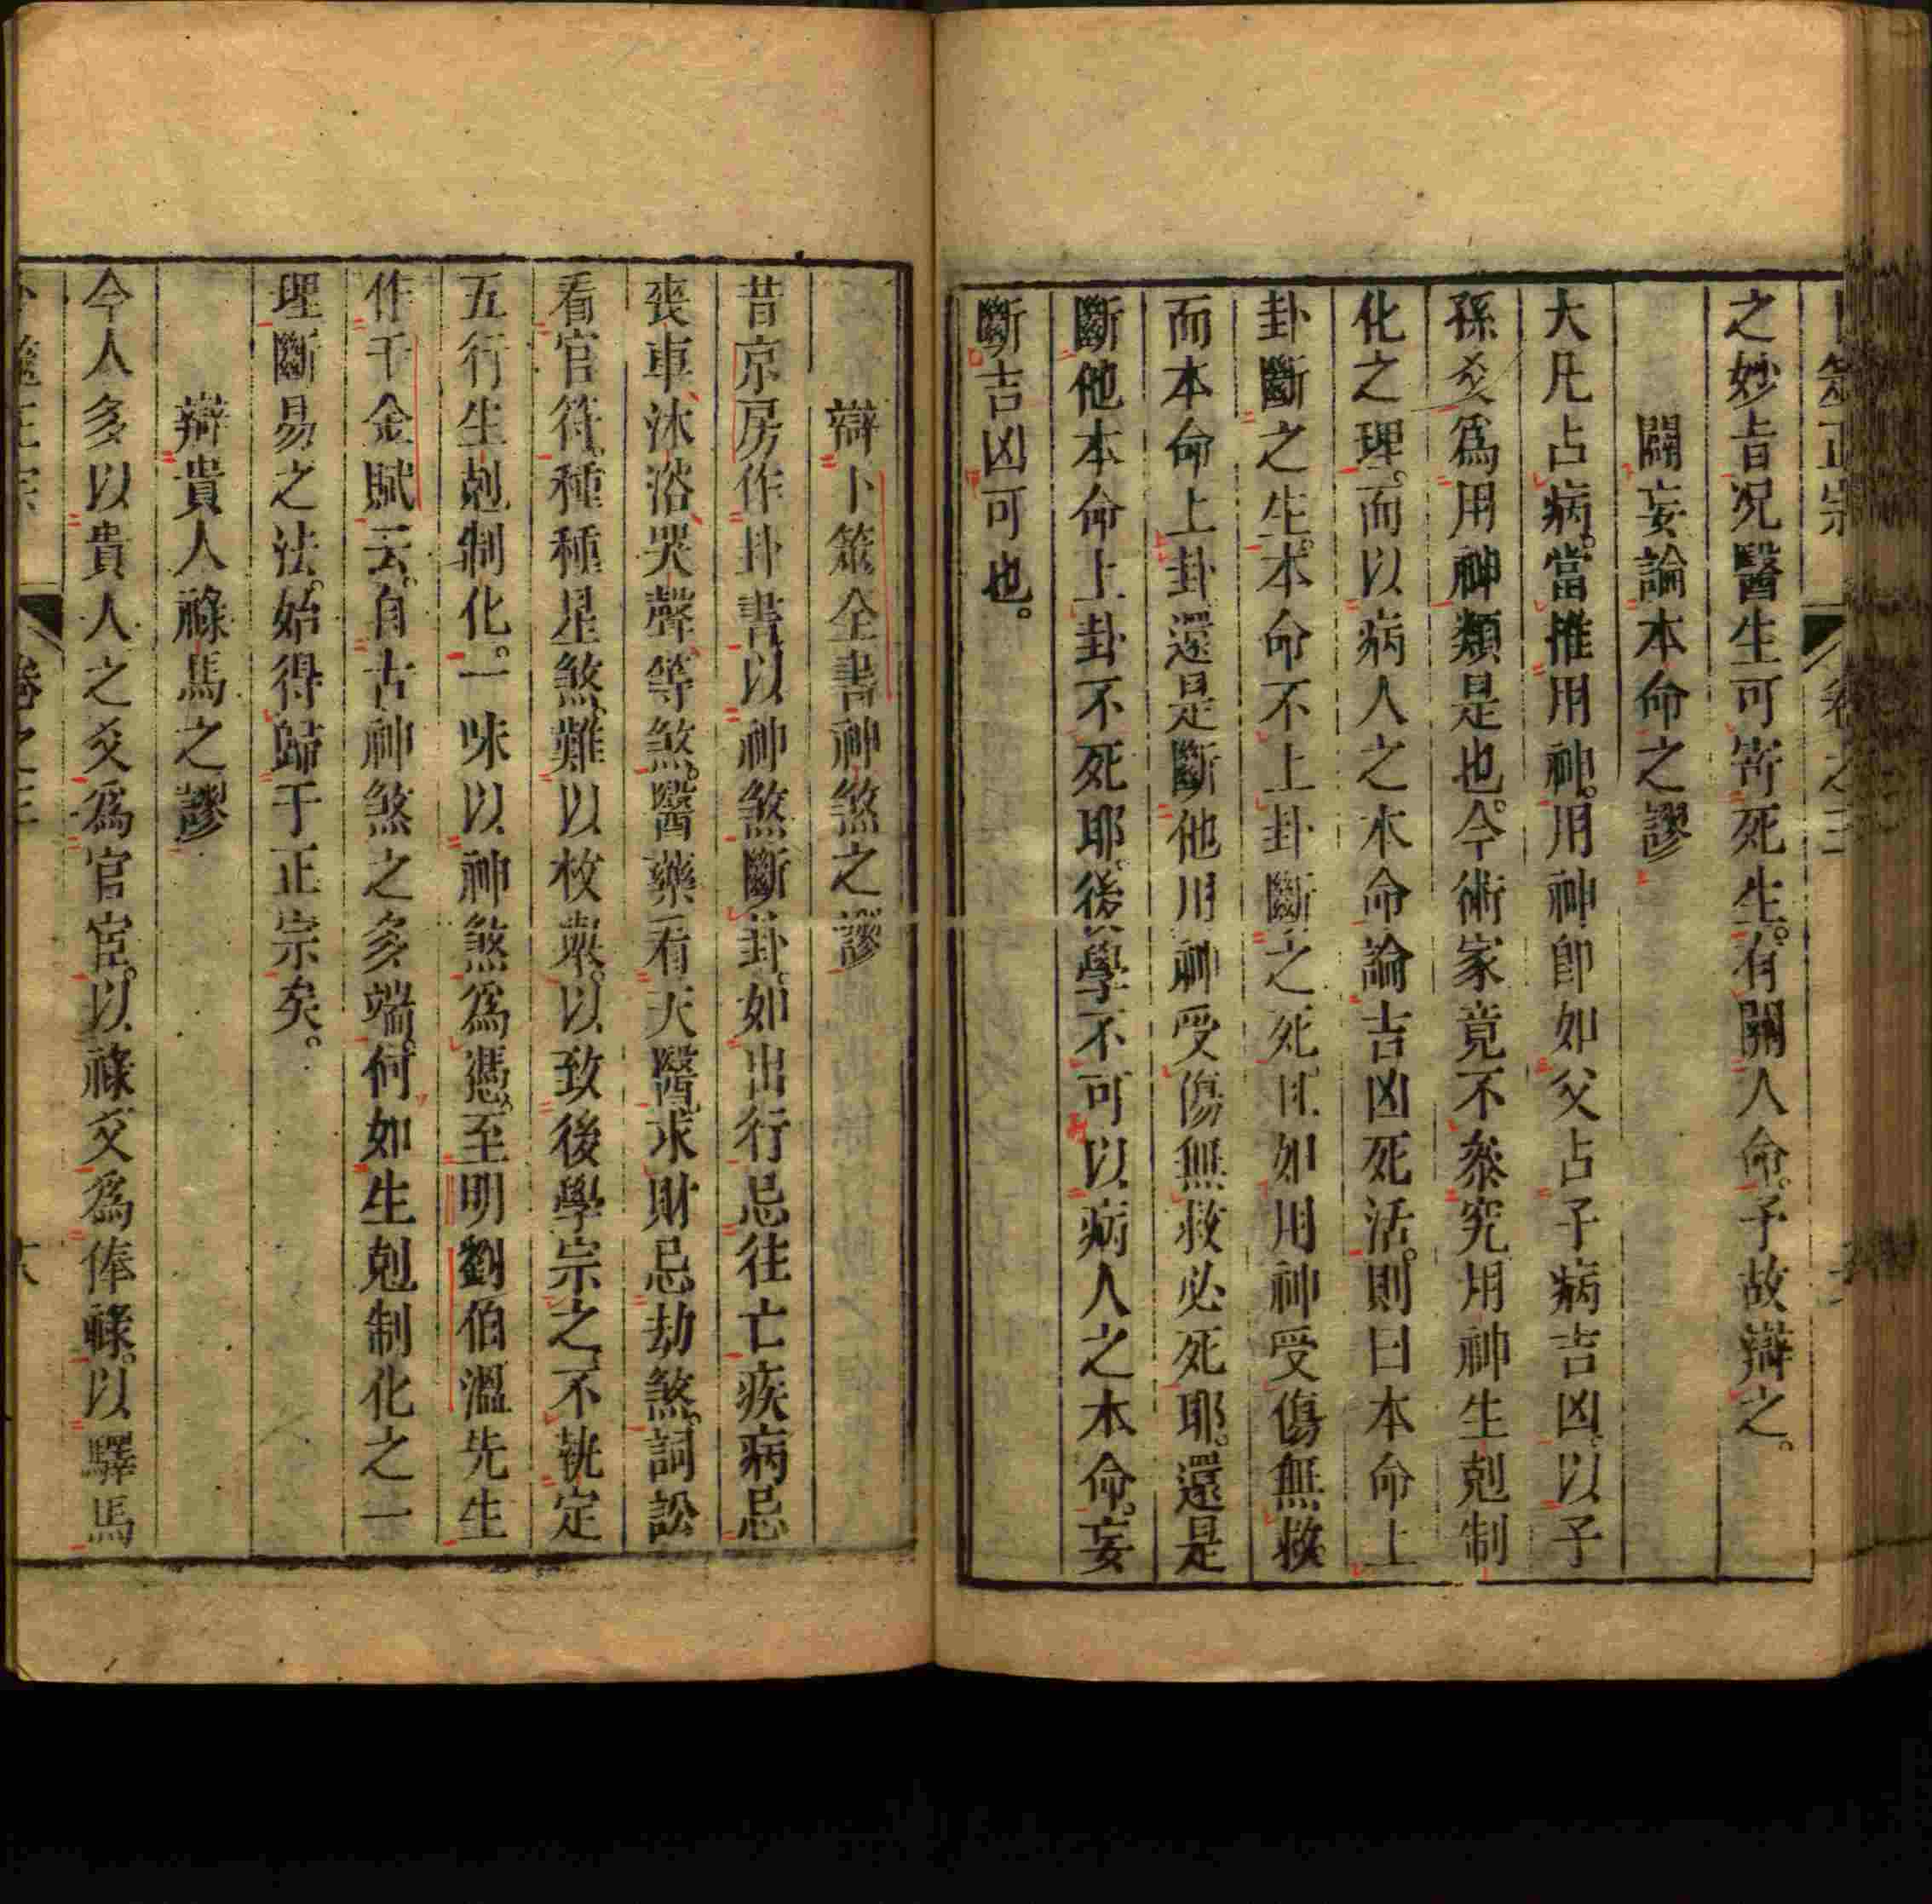 卜筮正宗 卷之三
之妙旨况醫生可寄死生。有關人命。予故辯之。
闢妄論本命之謬
大凡占病。當推用神。用神卽如父占子病吉凶。以子
孫爻爲用神類是也。今術家竟不叅究用神生剋制
化之理。而以病人之本命論吉凶死活。則曰本命上
卦斷之生。本命不上卦斷之死。且如用神受傷無救。
而本命上卦還是斷他用神受傷無救必死耶。還是
斷他本命上卦不死耶。後學不可以病人之本命。妄
斷吉凶可也。
辯卜筮全書神煞之謬
昔京房作卦書以神煞斷卦。如出行忌往亡疾病忌
喪車、沐浴、哭聲、等煞。醫藥看天醫。求財忌劫煞。詞訟
看官符。種種星煞。難以枚衆。以致後學宗之。不執定
五行生剋制化。一味以神煞爲憑。至明劉伯溫先生
作千金賦云。自古神煞之多端。何如生剋制化之一
理斷易之法。始得歸于正宗矣。
辯貴人祿馬之謬
今人多以貴人之爻爲官宦。以祿爻爲俸祿。以驛馬
卜筮正宗 卷之三 六